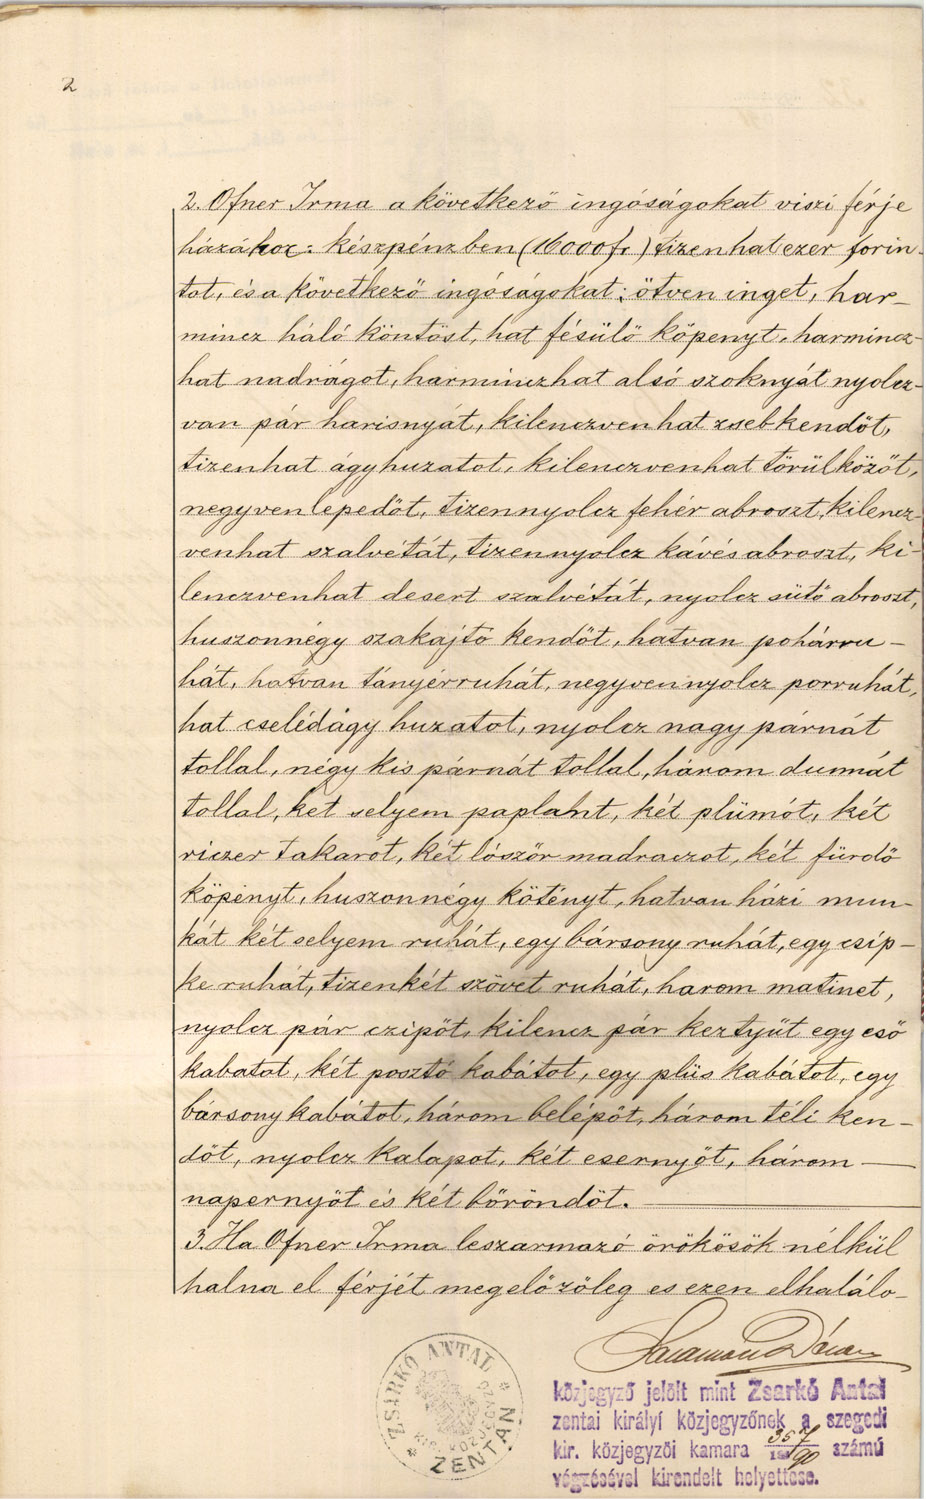 2
2. Ofner Irma a következő ingóságokat viszi férje
házához: készpénzben (16000 fr) tizenhatezer forin-
tot, és a következő ingóságokat: ötven inget, har-
mincz háló köntöst, hat fésülő köpenyt, harmincz-
hat nadrágot, harminczhat alsó szoknyát nyolcz-
van pár harisnyát, kilenczvenhat zsebkendőt,
tizenhat ágyhuzatot, kilenczvenhat törülközőt,
negyven lepedőt, tizennyolcz fehér abroszt, kilencz-
venhat szalvétát, tizennyolcz kávés abroszt, ki-
lenczvenhat desert szalvétát, nyolcz sütő abroszt,
huszonnégy szakajtó kendőt, hatvan pohárru-
hát, hatvan tányérruhát, negyvennyolcz porruhát,
hat cselédágy huzatot, nyolcz nagy párnát
tollal, négy kis párnát tollal, három dunnát
tollal, ket selyem paplant, két plümót, két
riczer takarót, két lószőr madraczot, két fürdő
köpenyt, huszonnégy kötényt, hatvan házi mun-
kát két selyem ruhát, egy bársony ruhát, egy csip-
ke ruhát, tizenkét szövet ruhát, harom matinet,
nyolcz pár czipőt, kilencz pár keztyűt egy eső
kabatot, két posztó kabátot, egy plüs kabátot, egy
bársony kabátot, három belépőt, három téli ken-
dőt, nyolcz kalapot, két esernyőt, három
napernyőt és két bőröndöt.
3. Ha Ofner Irma leszarmazó örökösök nélkül
halna el férjét megelőzőleg es ezen elhalálo-
ZSARKÓ ANTAL
KIR. KÖZJEGYZŐ
* ZENTÁN *
közjegyző jelölt mint Zsarkó Antal
zentai királyi közjegyzőnek a szegedi
kir. közjegyzői kamara 357/1890 számú
végzésével kirendelt helyettese.